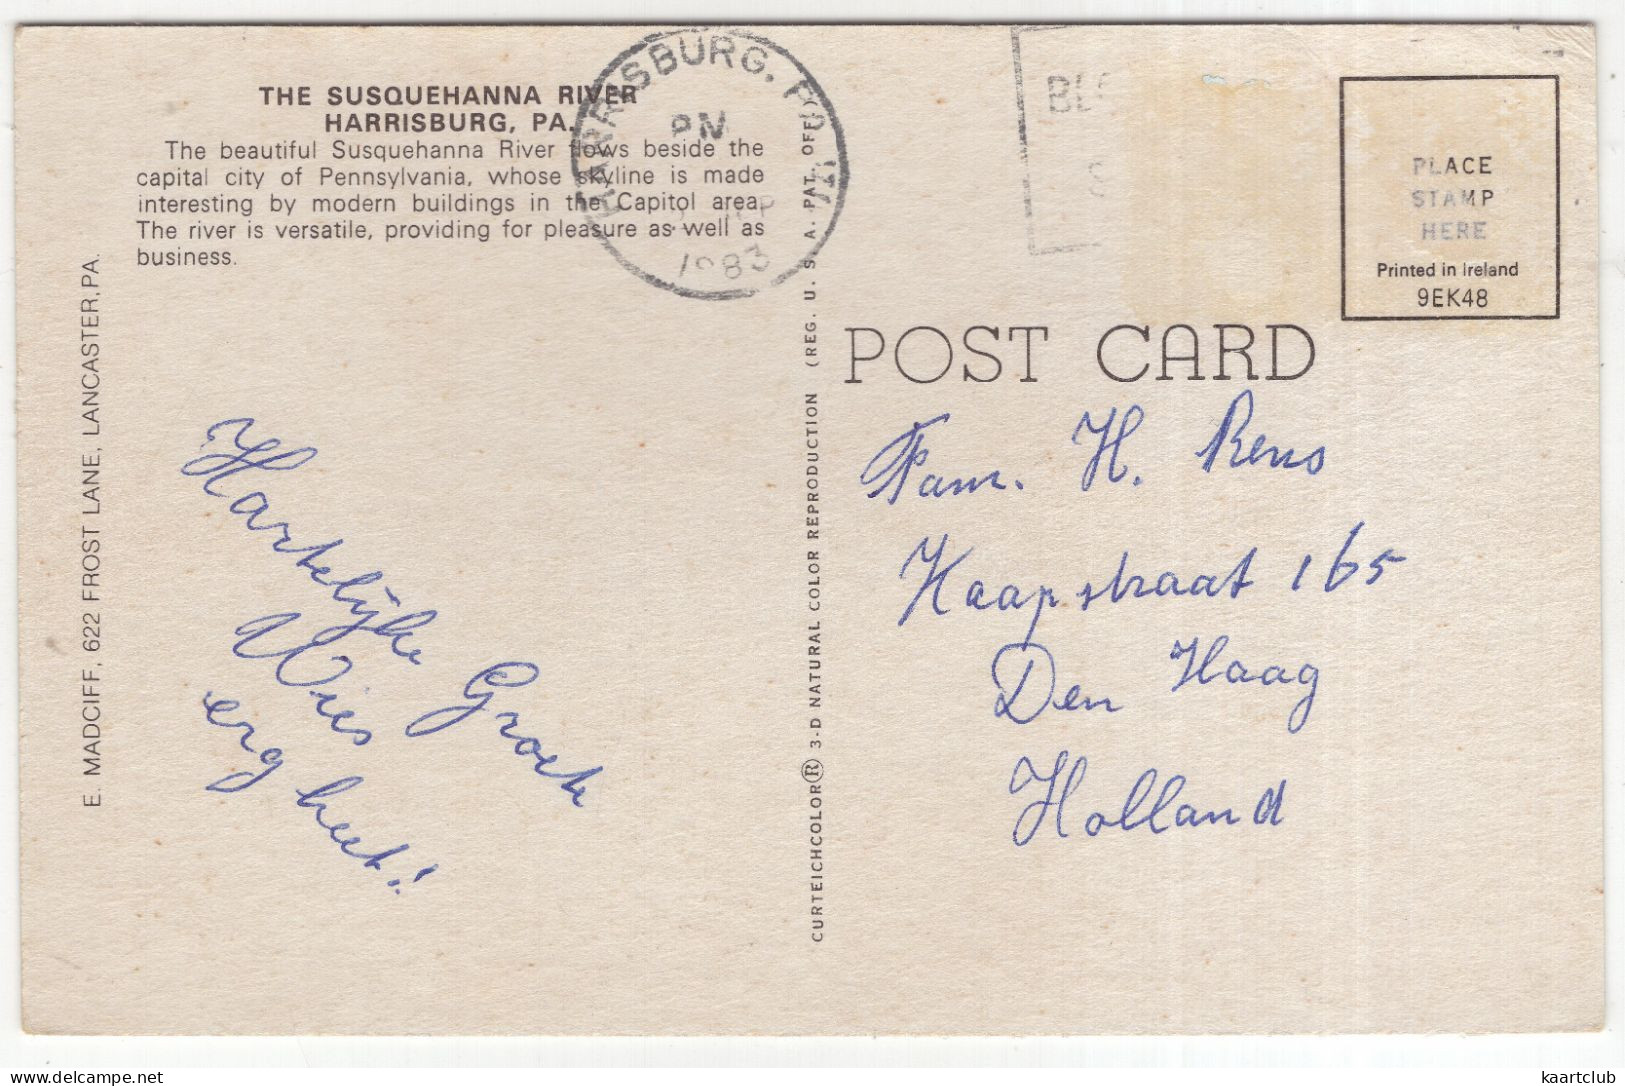 THE SUSQUEHANNA RIVER
HARRISBURG, PA.
The beautiful Susquehanna River flows beside the
capital city of Pennsylvania, whose skyline is made
interesting by modern buildings in the Capitol area.
The river is versatile, providing for pleasure as well as
business.
E. MADCIFF, 622 FROST LANE, LANCASTER, PA.
Hartelijke Groete
Wies
erg heet!
HARRISBURG, P
PM
1983
CURTEICHCOLOR® 3-D NATURAL COLOR REPRODUCTION (REG. U. S. A. PAT. OFF.)
PLACE
STAMP
HERE
Printed in Ireland
9EK48
POST CARD
Fam. H. Rens
Kaapstraat 165
Den Haag
Holland
kaartclub
www.delcampe.net